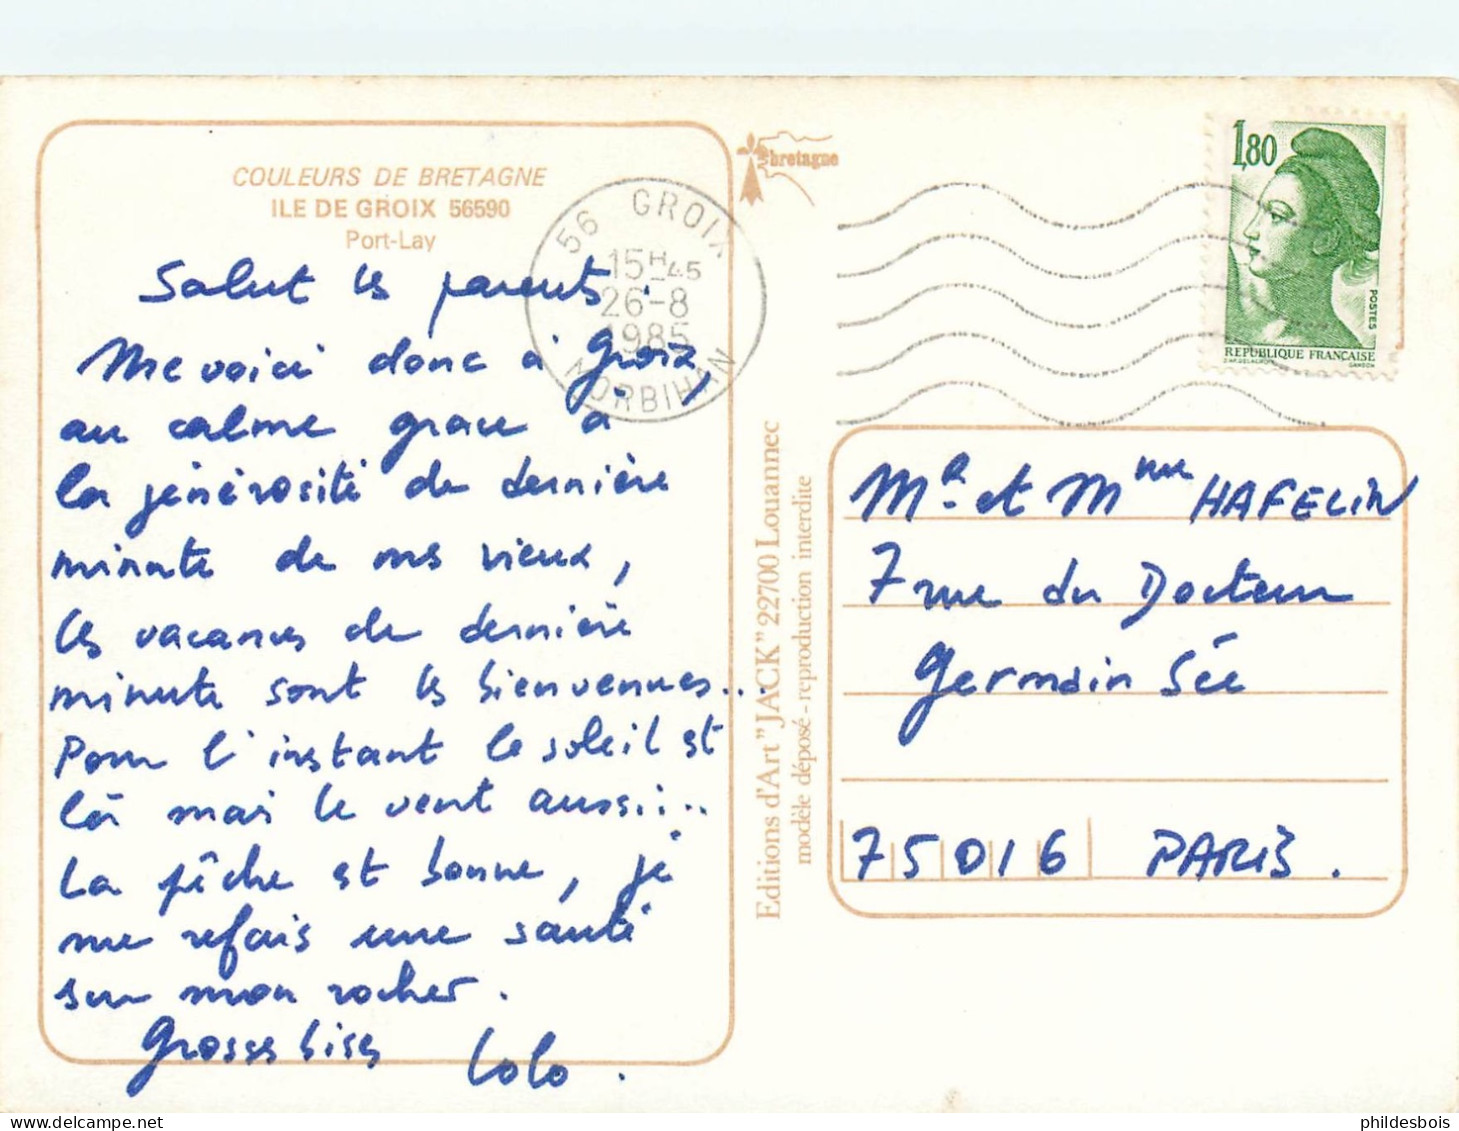 COULEURS DE BRETAGNE
ILE DE GROIX 56590
Port-Lay
Salut les parents.
Me voici donc à Groix,
au calme grace à
la jénérosité de dernière
minute de mes vieux,
les vacances de dernière
minute sont les bienvenues...
Pour l'instant le soleil est
là mais le vent aussi...
La pêche est bonne, je
me refais une santé
sur mon rocher.
Grosses bises
Lolo.
56 GROIX
15H45
26-8
1985
MORBIHAN
bretagne
Editions d'Art "JACK" 22700 Louannec
modèle déposé - reproduction interdite
1,80
POSTES
REPUBLIQUE FRANÇAISE
D'AP. DELACROIX GANDON
Mr. et Mme HAFELIN
7 rue du Docteur
Germain Sée
75016 PARIS.
phildesbois